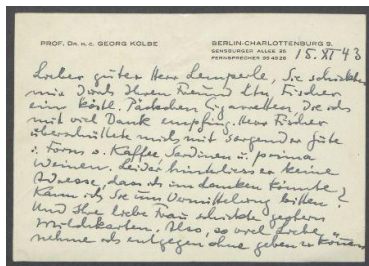 PROF. DR. H. C. GEORG KOLBE
BERLIN-CHARLOTTENBURG 9.
SENSBURGER ALLEE 25
FERNSPRECHER 99 43 28
15. XI 43
Lieber guter Herr Lemperle, Sie schickten
mir durch Ihren Freund Ltn. Fischer
ein köstl. Päckchen Cigaretten die ich
mit viel Dank empfing. Herr Fischer
überschüttete mich mit sorgender Güte
i. Form v. Kaffee, Sardinen u. prima
Weinen. Leider hinterliess er keine
Adresse, dass ich ihm danken könnte?
Kann ich Sie um Vermittelung bitten?
Und Ihre liebe Frau schickte gestern
Wildkarten. Also, so viel Liebe
nehme ich entgegen ohne geben zu können